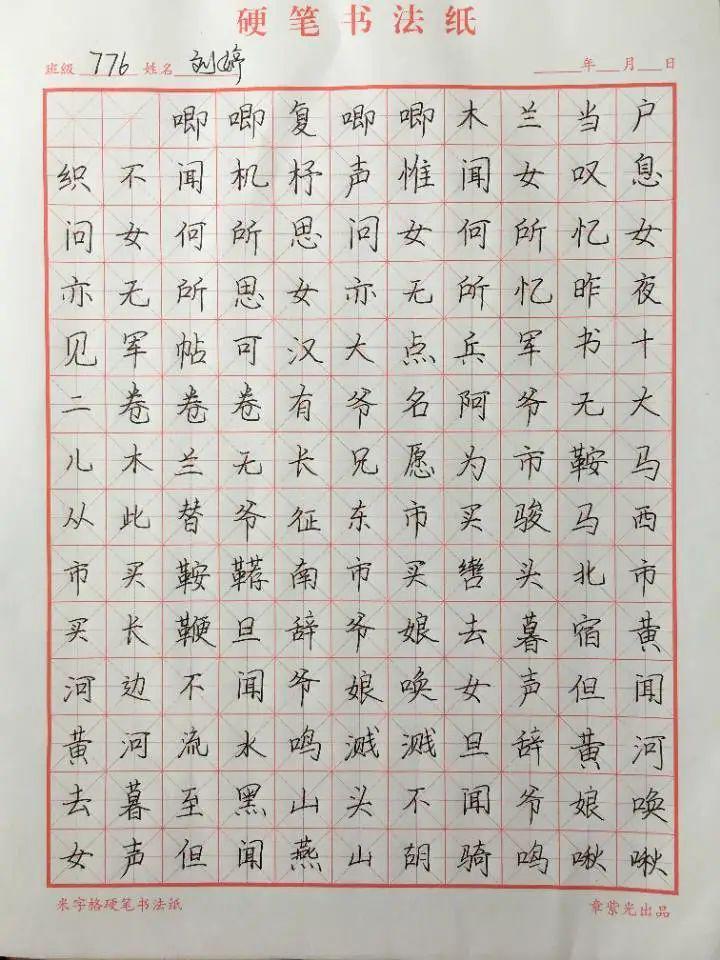 硬笔书法纸
班级 776 姓名 刘婷 年 月 日
唧唧复唧唧木兰当户
织不闻机杼声惟闻女叹息
问女何所思问女何所忆女
亦无所思女亦无所忆昨夜
见军帖可汉大点兵军书十
二卷卷卷有爷名阿爷无大
儿木兰无长兄愿为市鞍马
从此替爷征东市买骏马西
市买鞍鞯南市买辔头北市
买长鞭旦辞爷娘去暮宿黄
河边不闻爷娘唤女声但闻
黄河流水鸣溅溅旦辞黄河
去暮至黑山头不闻爷娘唤
女声但闻燕山胡骑鸣啾啾
米字格硬笔书法纸 章紫光出品